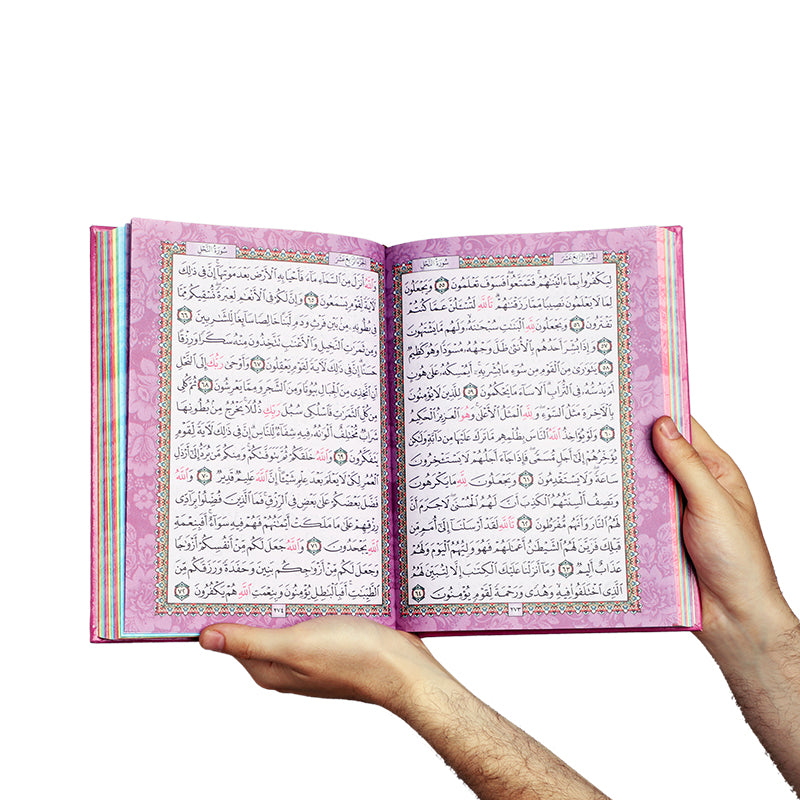 الجزء الرابع عشر
سورة النحل
لِيَكْفُرُوا۟ بِمَآ ءَاتَيْنَٰهُمْ ۚ فَتَمَتَّعُوا۟ ۖ فَسَوْفَ تَعْلَمُونَ ٥٥ وَيَجْعَلُونَ
لِمَا لَا يَعْلَمُونَ نَصِيبًا مِّمَّا رَزَقْنَٰهُمْ ۗ تَٱللَّهِ لَتُسْـَٔلُنَّ عَمَّا كُنتُمْ
تَفْتَرُونَ ٥٦ وَيَجْعَلُونَ لِلَّهِ ٱلْبَنَٰتِ سُبْحَٰنَهُۥ ۙ وَلَهُم مَّا يَشْتَهُونَ
٥٧ وَإِذَا بُشِّرَ أَحَدُهُم بِٱلْأُنثَىٰ ظَلَّ وَجْهُهُۥ مُسْوَدًّا وَهُوَ كَظِيمٌ
٥٨ يَتَوَٰرَىٰ مِنَ ٱلْقَوْمِ مِن سُوٓءِ مَا بُشِّرَ بِهِۦٓ ۚ أَيُمْسِكُهُۥ عَلَىٰ هُونٍ
أَمْ يَدُسُّهُۥ فِى ٱلتُّرَابِ ۗ أَلَا سَآءَ مَا يَحْكُمُونَ ٥٩ لِلَّذِينَ لَا يُؤْمِنُونَ
بِٱلْـَٔاخِرَةِ مَثَلُ ٱلسَّوْءِ ۖ وَلِلَّهِ ٱلْمَثَلُ ٱلْأَعْلَىٰ ۚ وَهُوَ ٱلْعَزِيزُ ٱلْحَكِيمُ
٦٠ وَلَوْ يُؤَاخِذُ ٱللَّهُ ٱلنَّاسَ بِظُلْمِهِم مَّا تَرَكَ عَلَيْهَا مِن دَآبَّةٍ وَلَٰكِن
يُؤَخِّرُهُمْ إِلَىٰٓ أَجَلٍ مُّسَمًّى ۖ فَإِذَا جَآءَ أَجَلُهُمْ لَا يَسْتَـْٔخِرُونَ
سَاعَةً ۖ وَلَا يَسْتَقْدِمُونَ ٦١ وَيَجْعَلُونَ لِلَّهِ مَا يَكْرَهُونَ
وَتَصِفُ أَلْسِنَتُهُمُ ٱلْكَذِبَ أَنَّ لَهُمُ ٱلْحُسْنَىٰ ۖ لَا جَرَمَ أَنَّ
لَهُمُ ٱلنَّارَ وَأَنَّهُم مُّفْرَطُونَ ٦٢ تَٱللَّهِ لَقَدْ أَرْسَلْنَآ إِلَىٰٓ أُمَمٍ مِّن
قَبْلِكَ فَزَيَّنَ لَهُمُ ٱلشَّيْطَٰنُ أَعْمَٰلَهُمْ فَهُوَ وَلِيُّهُمُ ٱلْيَوْمَ وَلَهُمْ
عَذَابٌ أَلِيمٌ ٦٣ وَمَآ أَنزَلْنَا عَلَيْكَ ٱلْكِتَٰبَ إِلَّا لِتُبَيِّنَ لَهُمُ
ٱلَّذِى ٱخْتَلَفُوا۟ فِيهِ ۙ وَهُدًى وَرَحْمَةً لِّقَوْمٍ يُؤْمِنُونَ ٦٤
٢٧٣
الجزء الرابع عشر
سورة النحل
وَٱللَّهُ أَنزَلَ مِنَ ٱلسَّمَآءِ مَآءً فَأَحْيَا بِهِ ٱلْأَرْضَ بَعْدَ مَوْتِهَآ ۚ إِنَّ فِى ذَٰلِكَ
لَـَٔايَةً لِّقَوْمٍ يَسْمَعُونَ ٦٥ وَإِنَّ لَكُمْ فِى ٱلْأَنْعَٰمِ لَعِبْرَةً ۖ نُّسْقِيكُم مِّمَّا
فِى بُطُونِهِۦ مِنۢ بَيْنِ فَرْثٍ وَدَمٍ لَّبَنًا خَالِصًا سَآئِغًا لِّلشَّٰرِبِينَ ٦٦
وَمِن ثَمَرَٰتِ ٱلنَّخِيلِ وَٱلْأَعْنَٰبِ تَتَّخِذُونَ مِنْهُ سَكَرًا وَرِزْقًا
حَسَنًا ۗ إِنَّ فِى ذَٰلِكَ لَـَٔايَةً لِّقَوْمٍ يَعْقِلُونَ ٦٧ وَأَوْحَىٰ رَبُّكَ إِلَى ٱلنَّحْلِ
أَنِ ٱتَّخِذِى مِنَ ٱلْجِبَالِ بُيُوتًا وَمِنَ ٱلشَّجَرِ وَمِمَّا يَعْرِشُونَ ٦٨ ثُمَّ كُلِى
مِن كُلِّ ٱلثَّمَرَٰتِ فَٱسْلُكِى سُبُلَ رَبِّكِ ذُلُلًا ۚ يَخْرُجُ مِنۢ بُطُونِهَا
شَرَابٌ مُّخْتَلِفٌ أَلْوَٰنُهُۥ فِيهِ شِفَآءٌ لِّلنَّاسِ ۗ إِنَّ فِى ذَٰلِكَ لَـَٔايَةً لِّقَوْمٍ
يَتَفَكَّرُونَ ٦٩ وَٱللَّهُ خَلَقَكُمْ ثُمَّ يَتَوَفَّىٰكُمْ ۚ وَمِنكُم مَّن يُرَدُّ إِلَىٰٓ أَرْذَلِ
ٱلْعُمُرِ لِكَىْ لَا يَعْلَمَ بَعْدَ عِلْمٍ شَيْـًٔا ۚ إِنَّ ٱللَّهَ عَلِيمٌ قَدِيرٌ ٧٠ وَٱللَّهُ
فَضَّلَ بَعْضَكُمْ عَلَىٰ بَعْضٍ فِى ٱلرِّزْقِ ۚ فَمَا ٱلَّذِينَ فُضِّلُوا۟ بِرَآدِّى
رِزْقِهِمْ عَلَىٰ مَا مَلَكَتْ أَيْمَٰنُهُمْ فَهُمْ فِيهِ سَوَآءٌ ۚ أَفَبِنِعْمَةِ
ٱللَّهِ يَجْحَدُونَ ٧١ وَٱللَّهُ جَعَلَ لَكُم مِّنْ أَنفُسِكُمْ أَزْوَٰجًا
وَجَعَلَ لَكُم مِّنْ أَزْوَٰجِكُم بَنِينَ وَحَفَدَةً وَرَزَقَكُم مِّنَ
ٱلطَّيِّبَٰتِ ۚ أَفَبِٱلْبَٰطِلِ يُؤْمِنُونَ وَبِنِعْمَتِ ٱللَّهِ هُمْ يَكْفُرُونَ ٧٢
٢٧٤